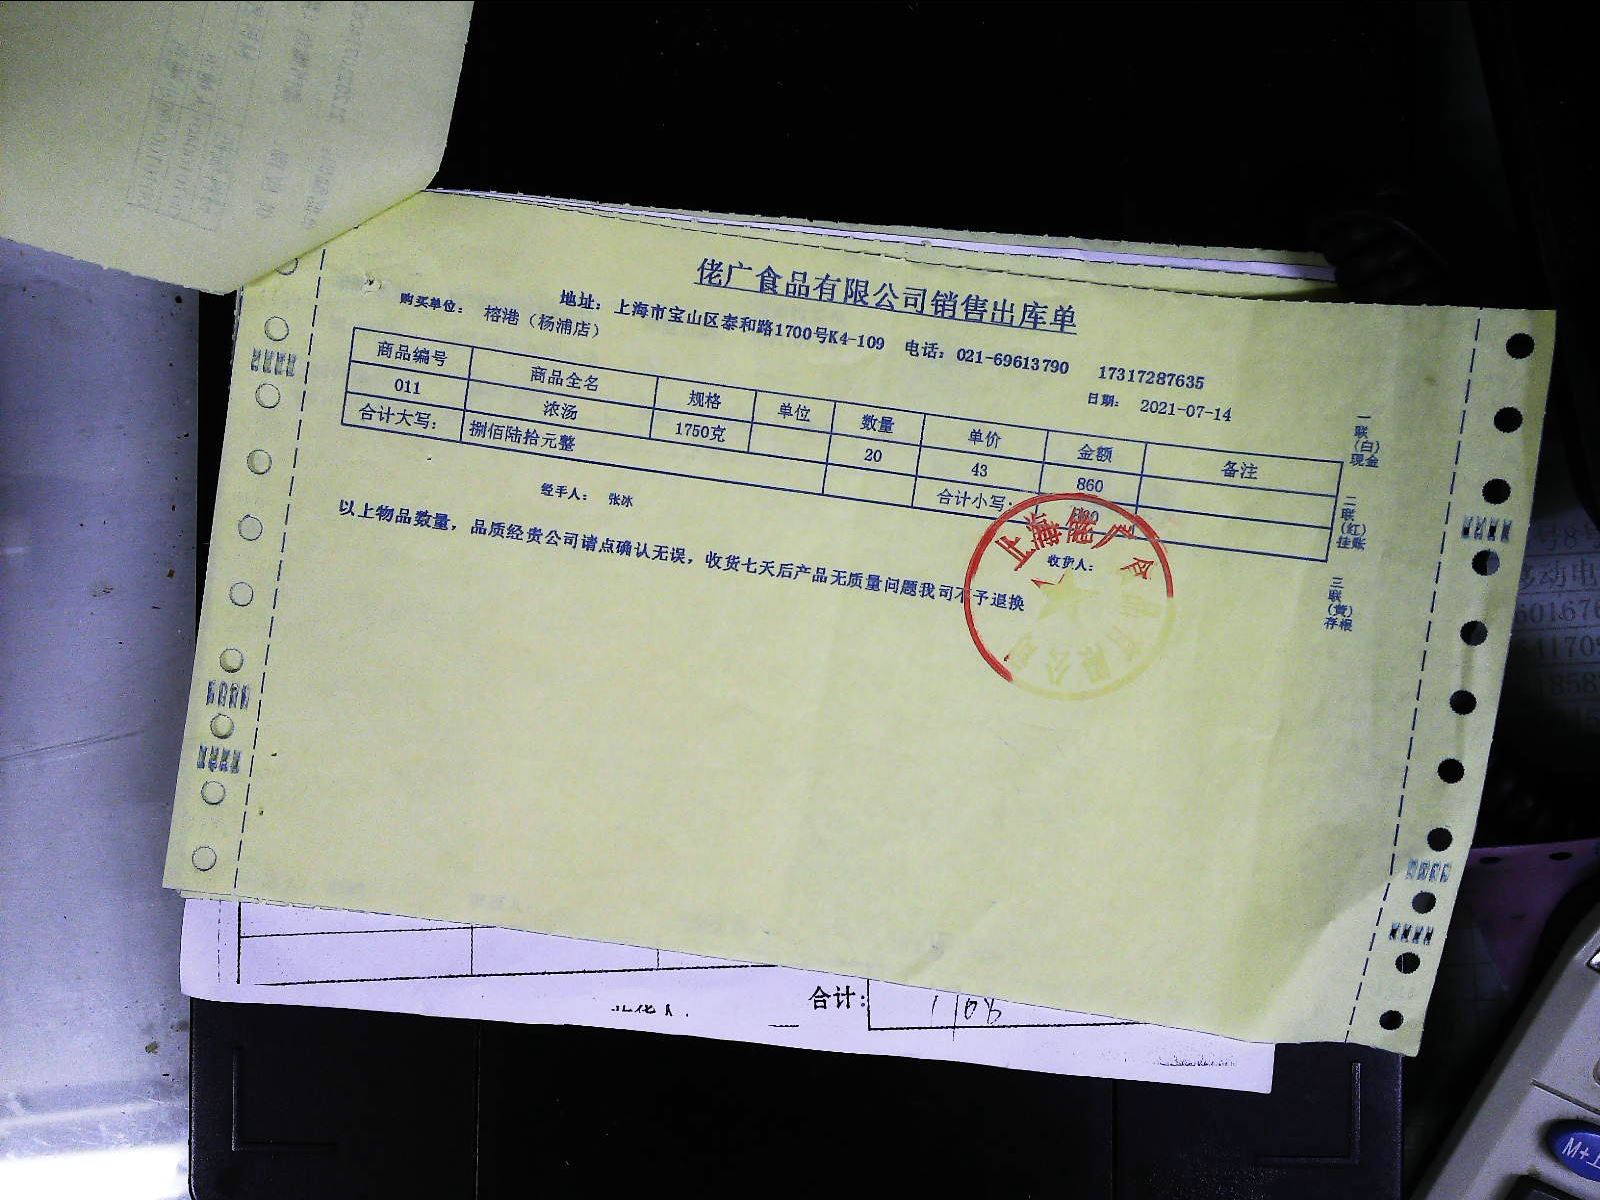 佬广食品有限公司销售出库单
地址：上海市宝山区泰和路1700号K4-109 电话：021-69613790 17317287635
购买单位： 榕港（杨浦店）
日期： 2021-07-14
商品编号 商品全名 规格 单位 数量 单价 金额 备注
011 浓汤 1750克 20 43 860
合计大写： 捌佰陆拾元整 合计小写：
经手人： 张冰
收货人：
以上物品数量，品质经贵公司请点确认无误，收货七天后产品无质量问题我司不予退换
一联（白）现金
二联（红）挂账
三联（黄）存根
上海佬广食品有限公司
合计：
M+